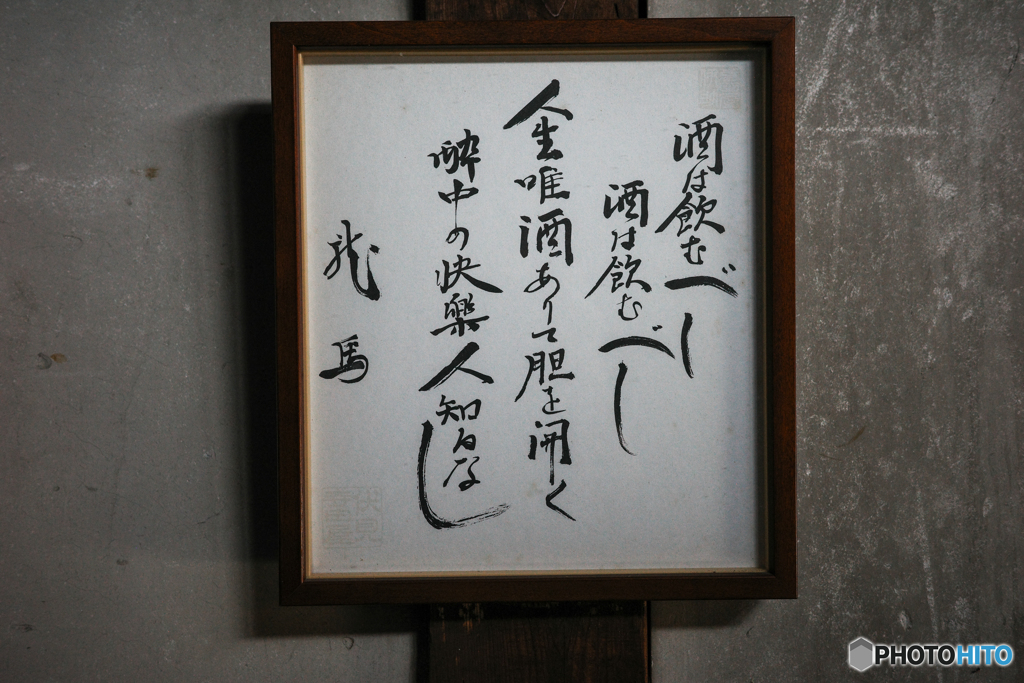 酒は飲むべし
酒は飲むべし
人生唯酒ありて胆を開く
酔中の快楽人知るなし
龍馬
PHOTOHITO